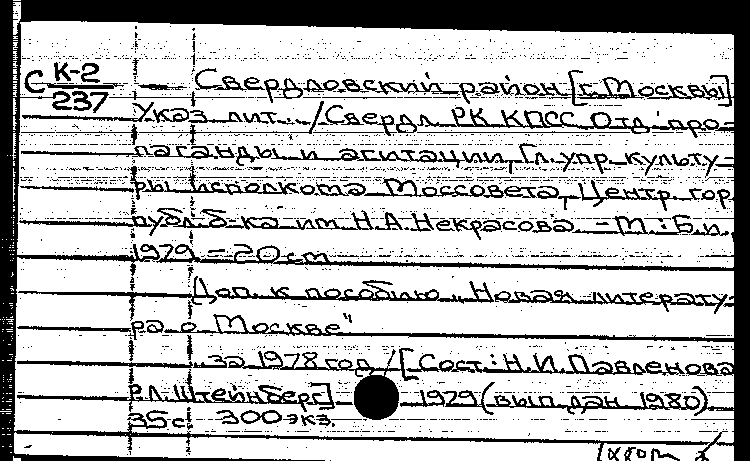 С К-2
237
— Свердловский район [г. Москвы]
Указ. лит... /Свердл. РК КПСС. Отд. про-
паганды и агитации, Гл. упр. культу-
ры исполкома Моссовета, Центр. гор.
публ. б-ка им. Н.А. Некрасова. – М.: Б.и.,
1979. – 20 см.
Доп. к пособию „Новая литерату-
ра о Москве"
..за 1978 год / [Сост.: Н.И. Павленова,
Р.Л. Штейнберг] 1979 (вып. дан. 1980).
35 с. 300 экз.